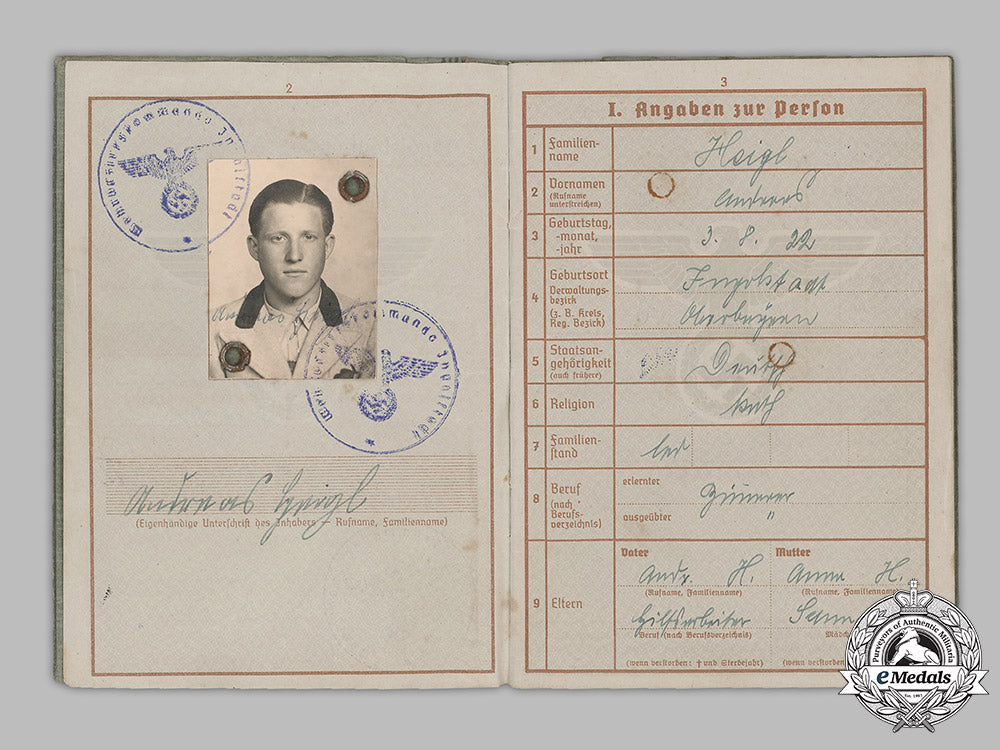 2
Wehrbezirkskommando Ingolstadt
Andreas
Wehrbezirkskommando Ingolstadt
Andreas Heigl
(Eigenhändige Unterschrift des Inhabers — Rufname, Familienname)
3
I. Angaben zur Person
1 Familien-
name
Heigl
2 Vornamen
(Rufname
unterstreichen)
Andreas
3 Geburtstag,
-monat,
-jahr
3. 8. 22
4 Geburtsort
Verwaltungs-
bezirk
(z. B. Kreis,
Reg. Bezirk)
Ingolstadt
Oberbayern
5 Staatsan-
gehörigkeit
(auch frühere)
Deutsch
6 Religion
kath
7 Familien-
stand
led
8 Beruf
(nach
Berufs-
verzeichnis)
erlernter
Zimmerer
ausgeübter
"
9 Eltern
Vater Mutter
Andr. H. Anna H.
(Rufname, Familienname) (Rufname, Familienname
Hilfsarbeiter
Beruf (nach Berufsverzeichnis) Mädch
(wenn verstorben: † und Sterbejahr) (wenn verstorben
Purveyors of Authentic Militaria
eMedals
Est. 1967